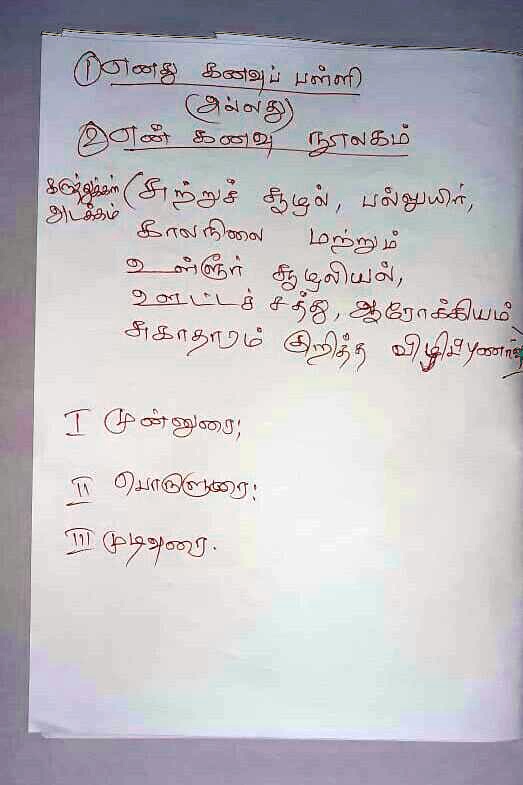 ① எனது கனவுப் பள்ளி
(அல்லது)
② என் கனவு நூலகம்
கருத்துக்கள்
அடக்கம்
(சுற்றுச் சூழல், பல்லுயிர்,
காலநிலை மற்றும்
உள்ளூர் சூழலியல்,
ஊட்டச் சத்து, ஆரோக்கியம்
சுகாதாரம் குறித்த விழிப்புணர்வு
I முன்னுரை;
II பொருளுரை:
III முடிவுரை.